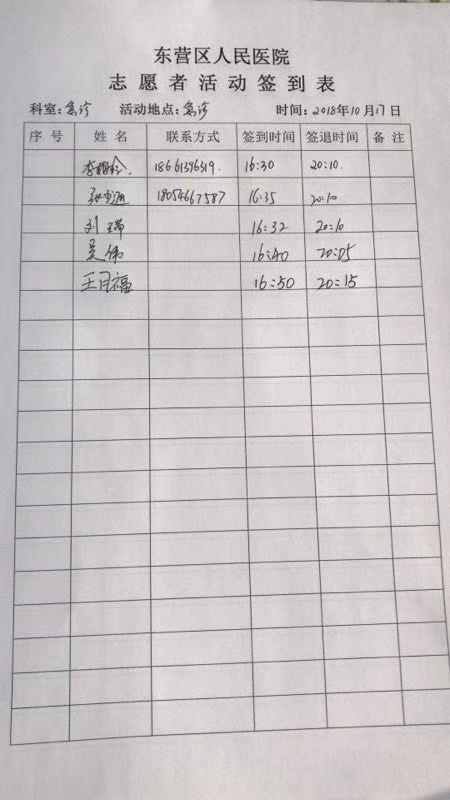 东营区人民医院
志愿者活动签到表
科室：急诊 活动地点：急诊 时间：2018年10月17日
序号 姓名 联系方式 签到时间 签退时间 备注
18661396319. 16:30 20:10.
18054667587 16:35 20:10
刘瑞 16:32 20:10
吴伟 16:40 20:05
王月福 16:50 20:15